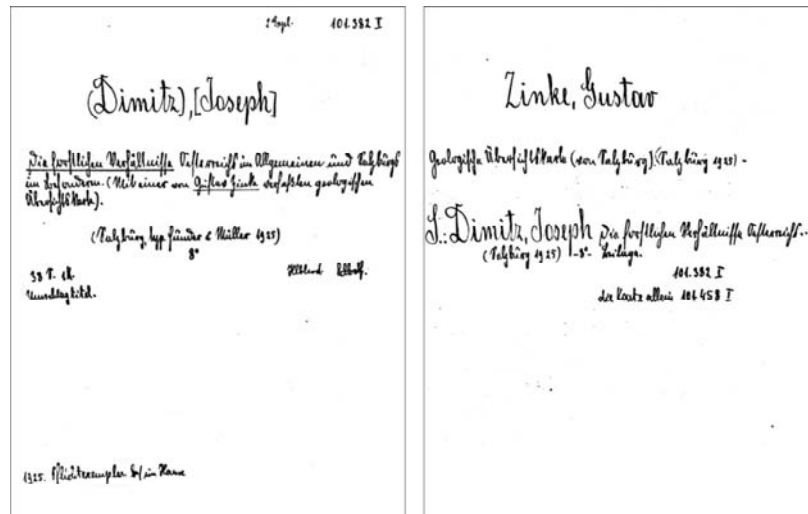 2 Expl. 101.382 I
(Dimitz), [Joseph]
Die forstlichen Verhältnisse Österreichs im Allgemeinen und Salzburgs
im besonderen. (Mit einer von Gustav Zinke verfaßten geologischen
Übersichtskarte).
(Salzburg, typ. Funder & Müller 1925)
8°
38 S. 1 K.
Umschlagtitel.
1925. Pflichtexemplar
Zinke, Gustav
Geologische Übersichtskarte (von Salzburg). (Salzburg 1925) -
S.: Dimitz, Joseph Die forstlichen Verhältnisse Österreichs...
(Salzburg 1925) -8°- Beilage.
101.382 I
die Karte allein 101.458 I